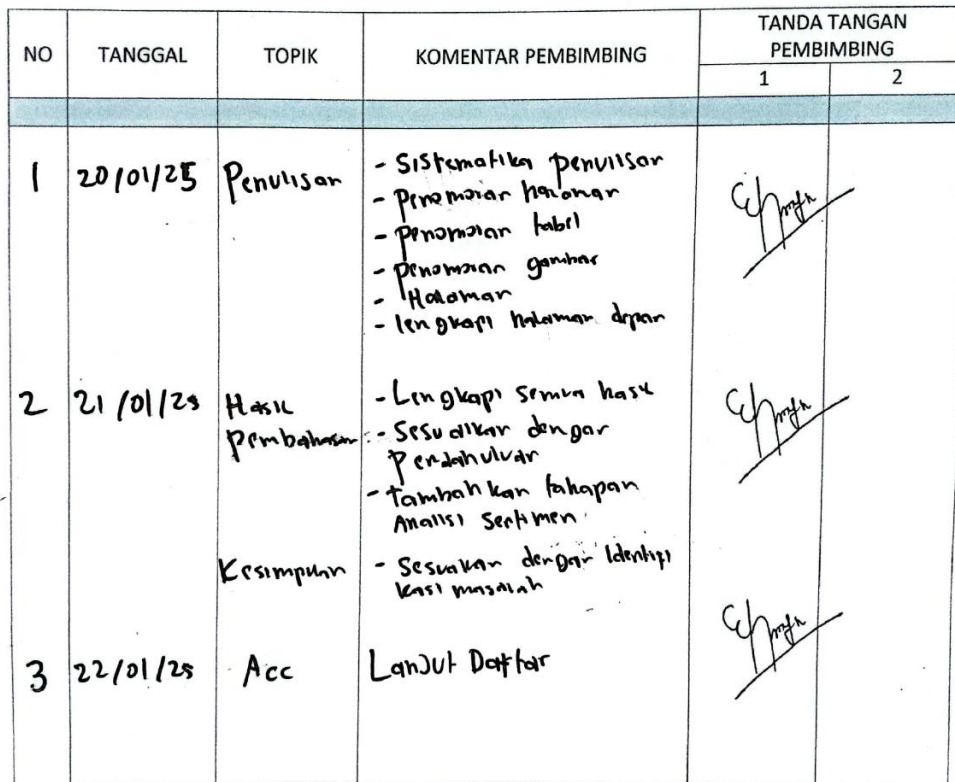 NO TANGGAL TOPIK KOMENTAR PEMBIMBING TANDA TANGAN PEMBIMBING
1 2
1 20/01/25 Penulisan - Sistematika penulisan
- Penomoran halaman
- penomoran tabel
- penomoran gambar
- Halaman
- lengkapi halaman depan
2 21/01/25 Hasil - Lengkapi semua hasil
pembahasan - Sesuaikan dengan
Pendahuluan
- Tambahkan tahapan
Analisi Sentimen
Kesimpulan - Sesuakan dengan Identifi
kasi masalah
3 22/01/25 Acc Lanjut Daftar